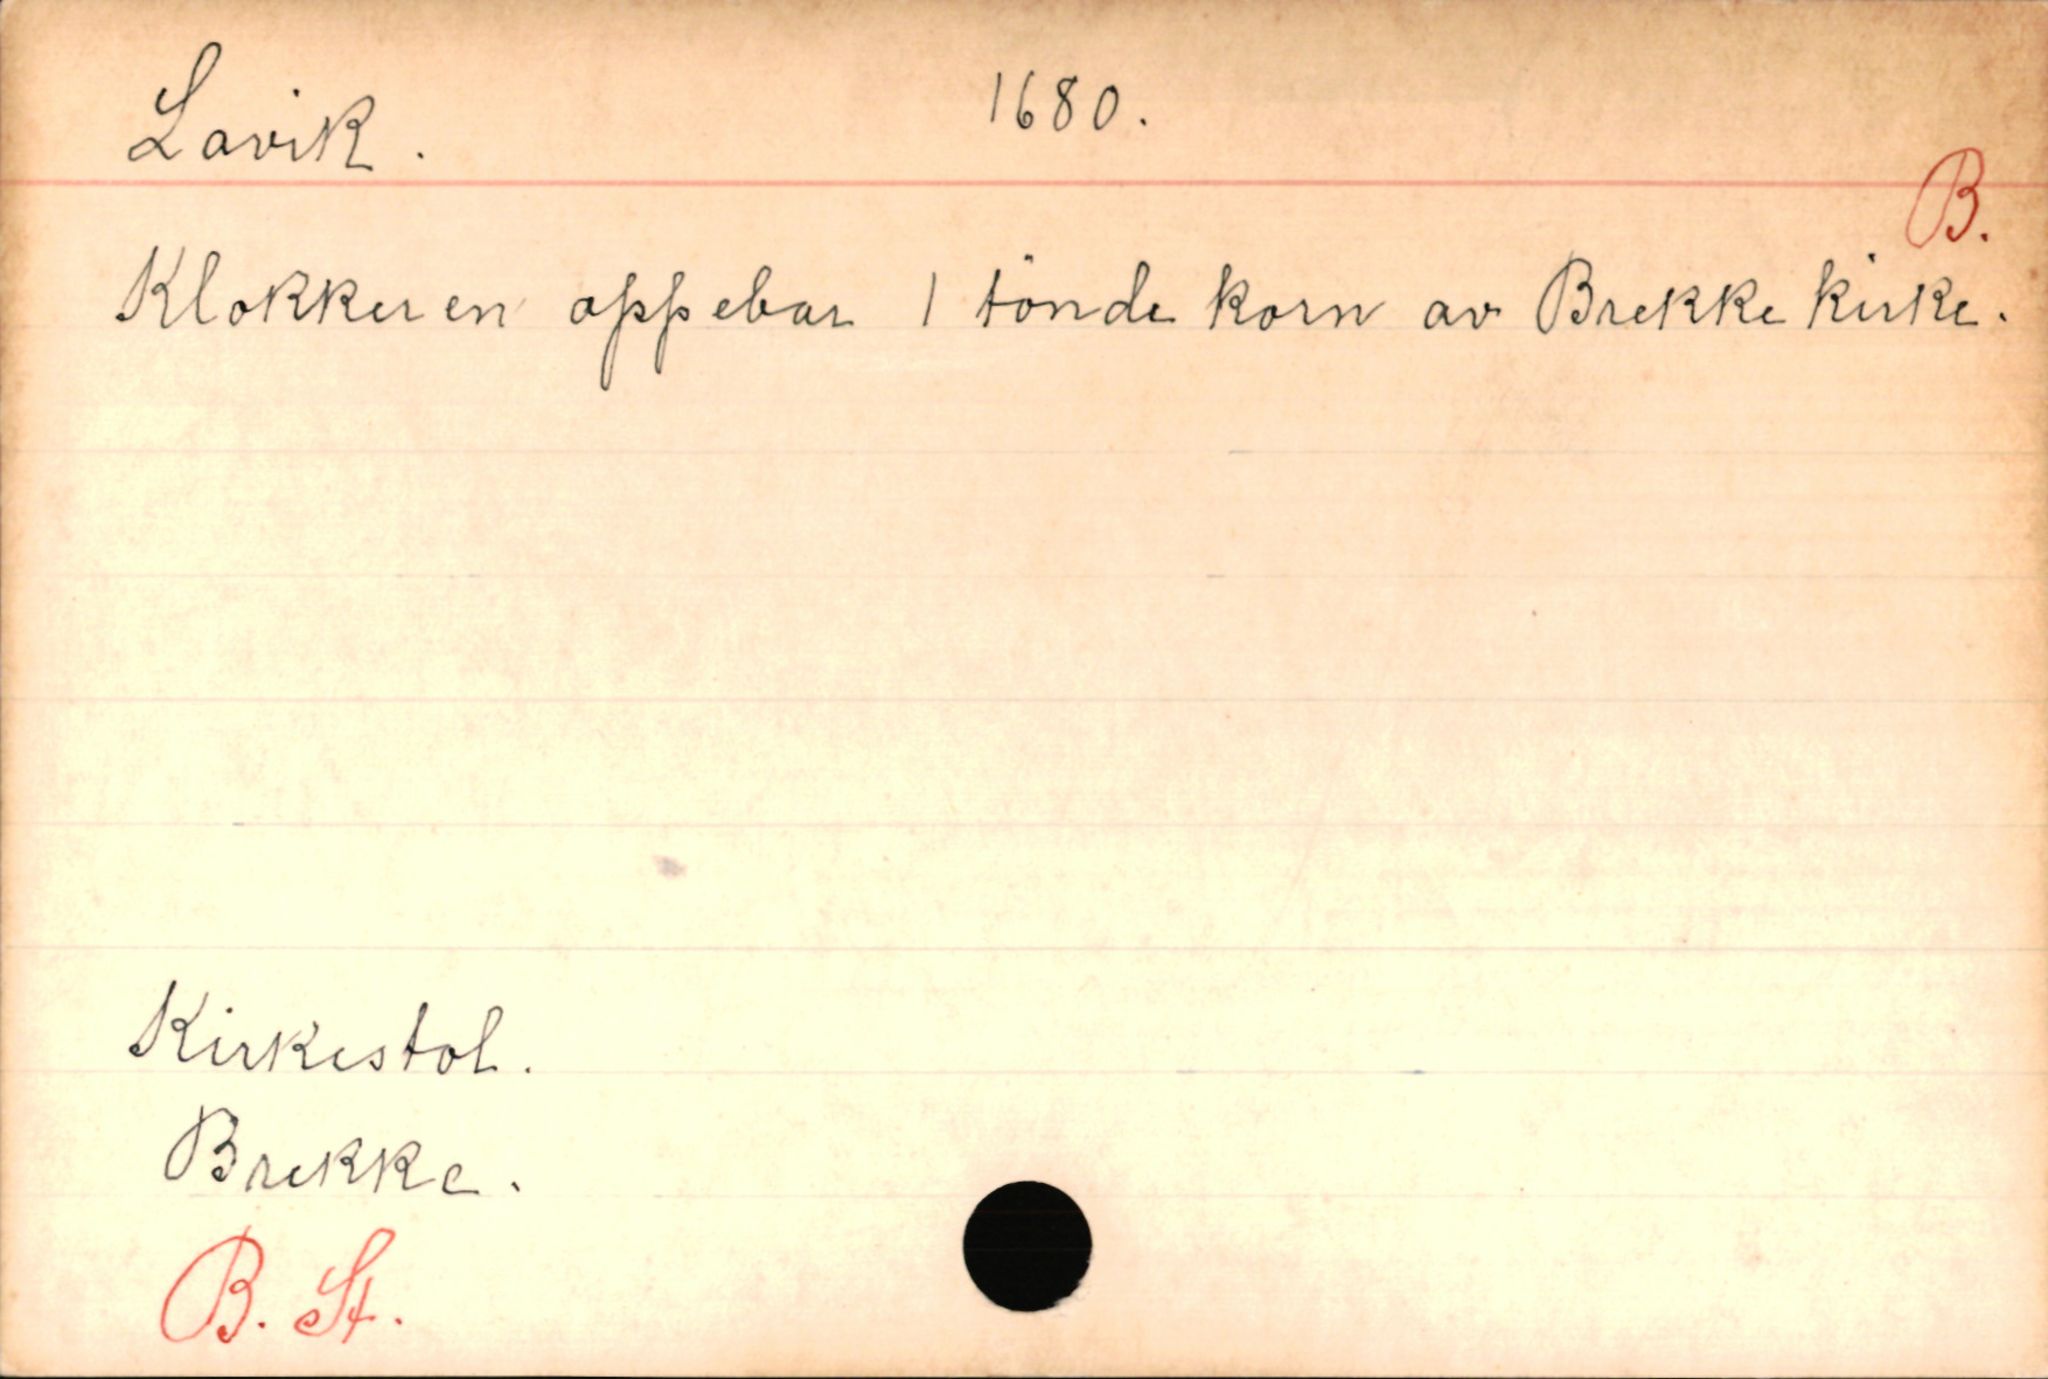 Lavik. 1680.
B.
Klokkeren oppebar 1 tönde korn av Brekke kirke.
Kirkestol.
Brekke.
B. St.